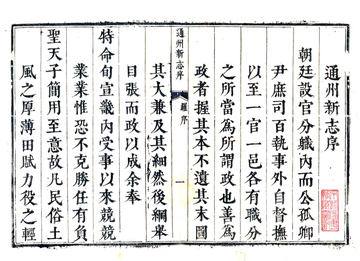 通州新志序
朝廷設官分職內而公孤卿
尹庶司百執事外自督撫
以至一官一邑各有職分
之所當為所謂政也善為
政者握其本不遺其末圖
通州新志序
羅序
一
其大兼及其細然後綱舉
目張而政以成余奉
特命旬宣畿內受事以來兢兢
業業惟恐不克勝任有負
聖天子簡用至意故凡民俗土
風之厚薄田賦力役之輕